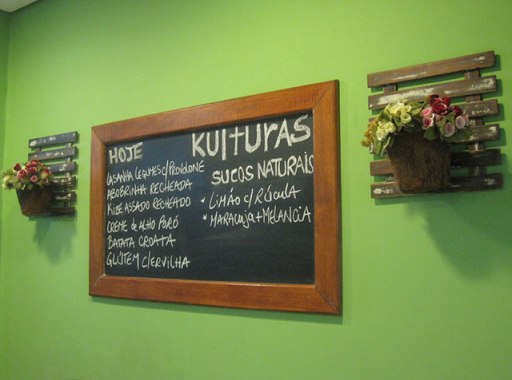 HOJE
LASANHA LEGUMES c/PROVOLONE
ABOBRINHA RECHEADA
KIBE ASSADO RECHEADO
CREME de ALHO PORÓ
BATATA CROATA
GLÚTEM c/ERVILHA
KULTURAS
SUCOS NATURAIS
* LIMÃO c/RÚCULA
* MARACUJÁ + MELANCIA